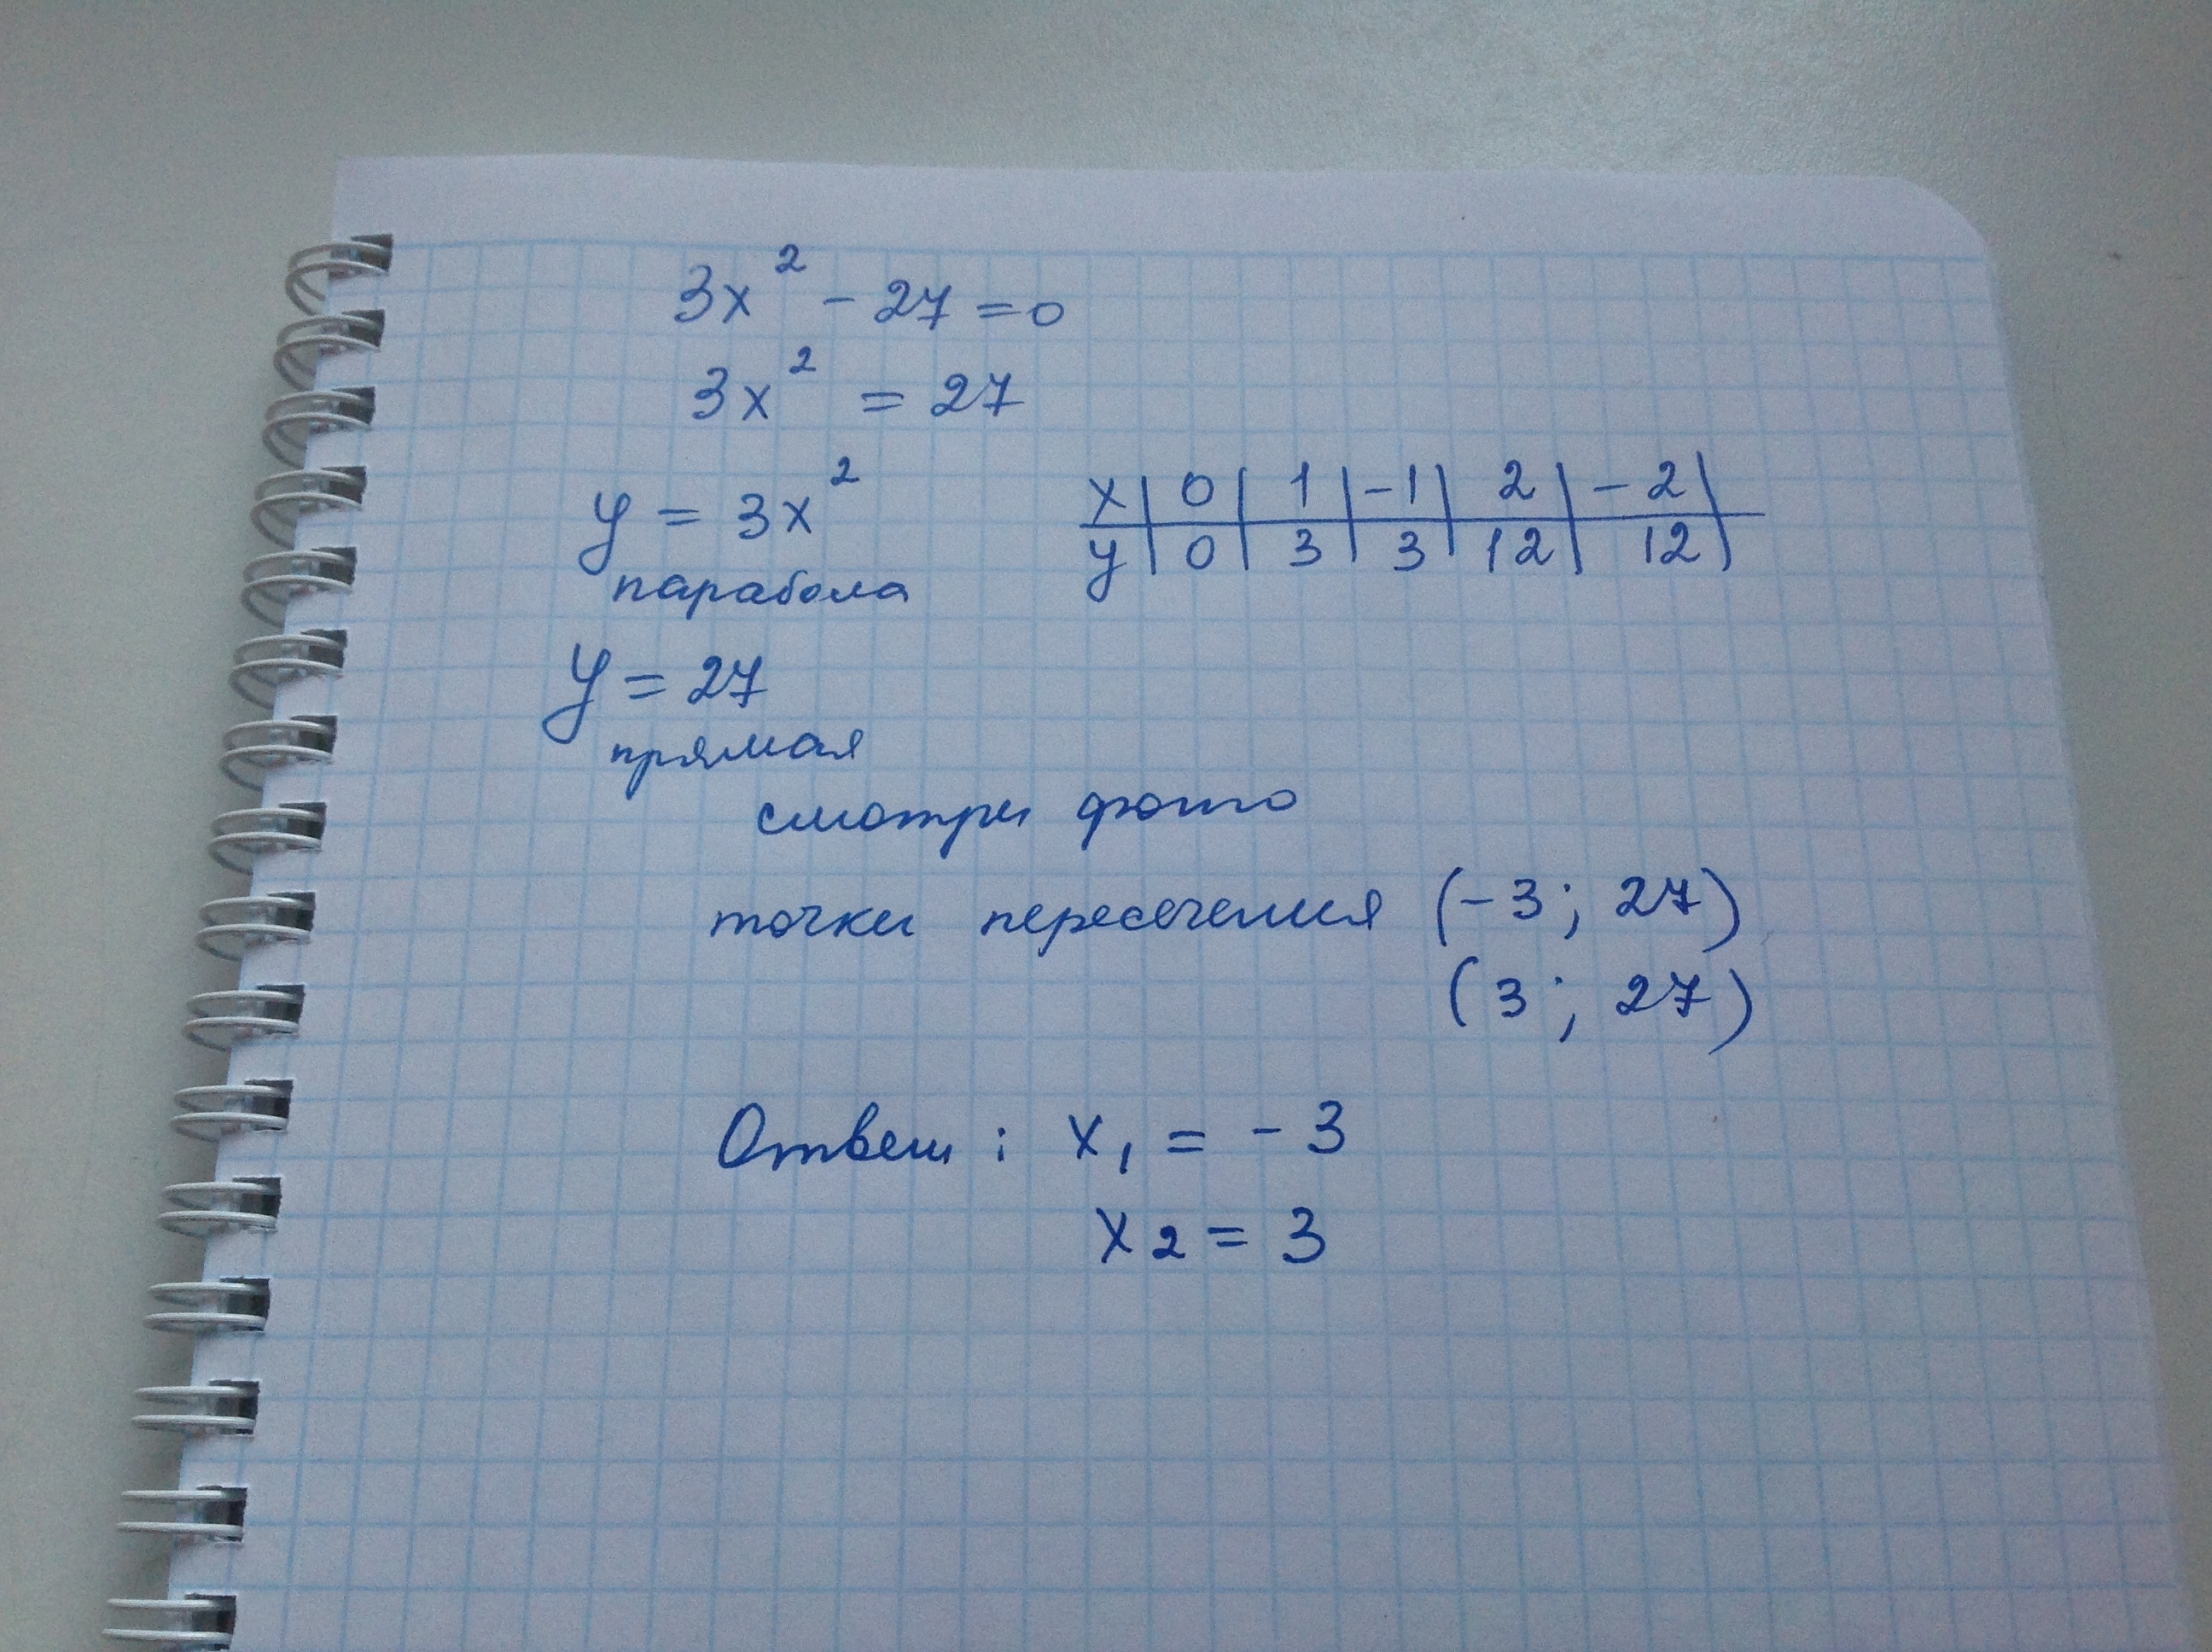 3x² - 27 = 0
3x² = 27
y = 3x²
парабола
x | 0 | 1 | -1 | 2 | -2 |
y | 0 | 3 | 3 | 12 | 12 |
y = 27
прямая
смотри фото
точки пересечения (-3; 27)
(3; 27)
Ответ: x₁ = -3
x₂ = 3